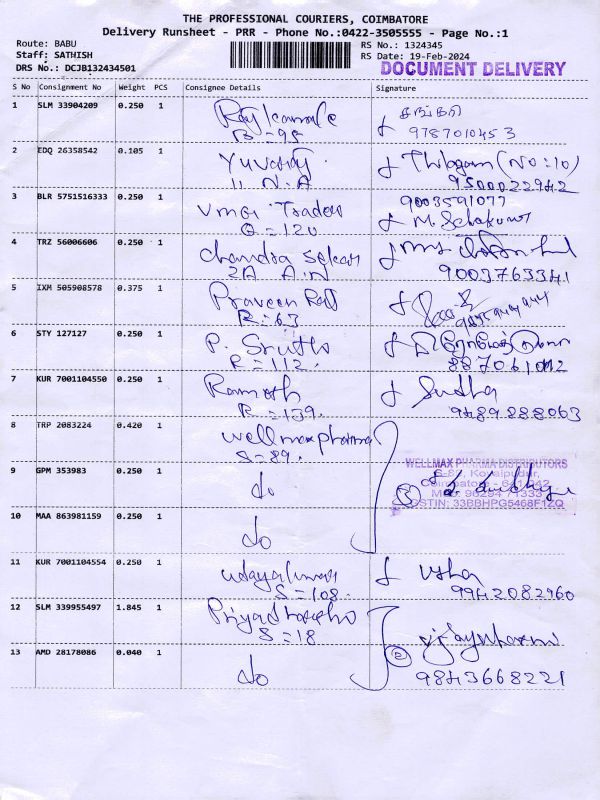 THE PROFESSIONAL COURIERS, COIMBATORE
Delivery Runsheet - PRR - Phone No.:0422-3505555 - Page No.:1
Route: BABU
RS No.: 1324345
Staff: SATHISH
RS Date: 19-Feb-2024
DRS No.: DCJB132434501
DOCUMENT DELIVERY
S No Consignment No Weight PCS Consignee Details Signature
1 SLM 33904209 0.250 1
B = 95 9787010453
2 EDQ 26358542 0.105 1 Yuvaraj Thilagam (NO:10)
11 N.A 9500022942
3 BLR 5751516333 0.250 1 Traders 9003591077
Q = 120 M.
4 TRZ 56006606 0.250 1 Chandra Sekar
2A A.N 9003763341
5 IXM 505908578 0.375 1 Praveen Raj
R = 63
6 STY 127127 0.250 1 P.
R = 112
7 KUR 7001104550 0.250 1 Ramesh Sudha
R = 139. 9489888063
8 TRP 2083224 0.420 1 Wellmax pharma
S = 89.
WELLMAX PHARMA DISTRIBUTORS
9 GPM 353983 0.250 1 do
S-89, Kovaipudur,
Coimbatore - 641 042
3
GSTIN: 33BBHPG5468F1ZQ
10 MAA 863981159 0.250 1 do
11 KUR 7001104554 0.250 1 Udayakumar Usha
S = 108. 9942082960
12 SLM 339955497 1.845 1
S = 18
13 AMD 28178086 0.040 1 do 2
9843668221